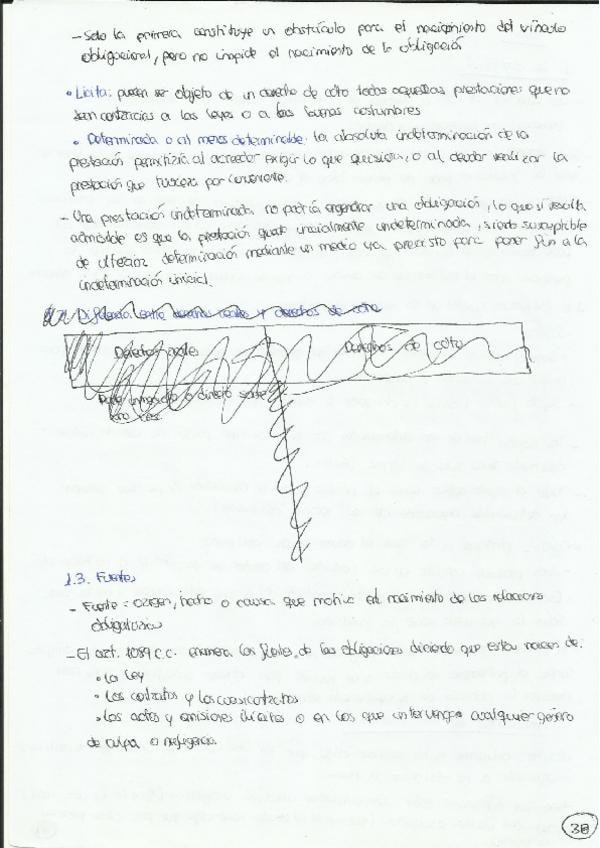 - Solo la primera constituye un obstáculo para el nacimiento del vínculo
obligacional, pero no impide el nacimiento de la obligación
• Lícita: pueden ser objeto de un derecho de cdto todas aquellas prestaciones que no
sean contrarias a las leyes o a las buenas costumbres
• Determinada o al menos determinable: la absoluta indeterminación de la
prestación permitiría al acreedor exigir lo que quisiera, o al deudor realizar la
prestación que tuviera por conveniente.
- Una prestación indeterminada no podría engendrar una obligación, lo que sí resulta
admisible es que la prestación quede inicialmente indeterminada, siendo susceptible
de ulterior determinación mediante un medio ya previsto para poner fin a la
indeterminación inicial.
Diferencia entre derechos reales y derechos de cdto
Derechos reales Derechos de cdto
Poder inmediato o directo sobre
una cosa
1.3. Fuentes
- Fuente = origen, hecho o causa que motiva el nacimiento de las relaciones
obligatorias
- El art. 1089 c.c. enumera las fuentes de las obligaciones diciendo que estas nacen de:
• La ley
• Los contratos y los cuasicontratos
• Los actos y omisiones ilícitos o en los que intervenga cualquier género
de culpa o negligencia.
38